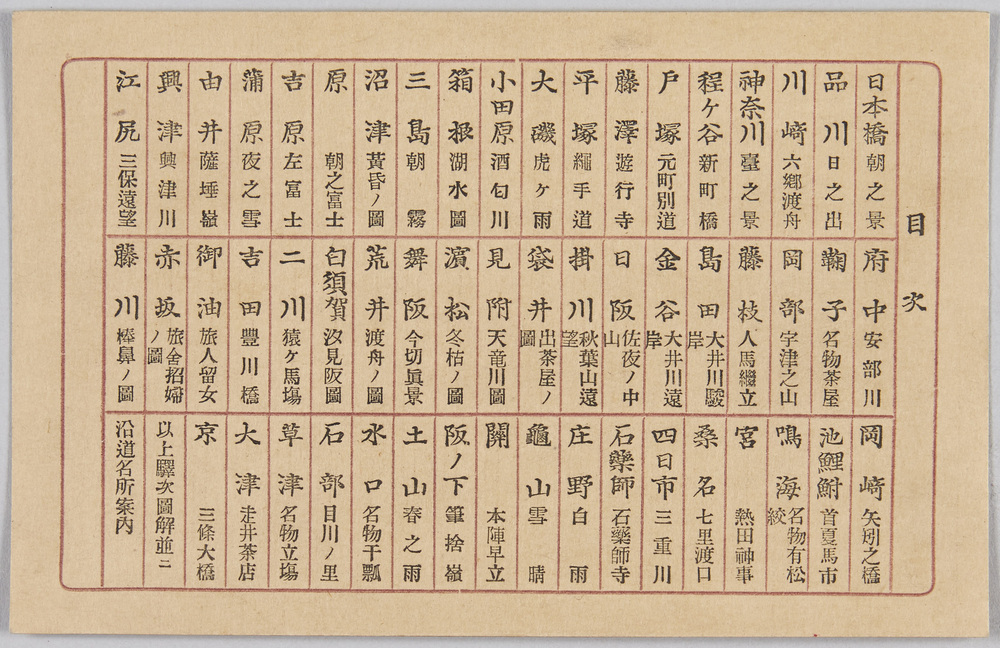 目次
日本橋 朝之景
品川 日之出
川﨑 六鄕渡舟
神奈川 臺之景
程ケ谷 新町橋
戶塚 元町別道
藤澤 遊行寺
平塚 繩手道
大磯 虎ケ雨
小田原 酒匂川
箱根 湖水圖
三島 朝霧
沼津 黃昏ノ圖
原 朝之富士
吉原 左富士
蒲原 夜之雪
由井 薩埵嶺
興津 興津川
江尻 三保遠望
府中 安部川
鞠子 名物茶屋
岡部 宇津之山
藤枝 人馬繼立
島田 大井川駿岸
金谷 大井川遠岸
日阪 佐夜ノ中山
掛川 秋葉山遠望
袋井 出茶屋ノ圖
見附 天竜川圖
濱松 冬枯ノ圖
舞阪 今切眞景
荒井 渡舟ノ圖
白須賀 汐見阪圖
二川 猿ケ馬塲
吉田 豐川橋
御油 旅人留女
赤坂 旅舍招婦ノ圖
藤川 棒鼻ノ圖
岡﨑 矢矧之橋
池鯉鮒 首夏馬市
鳴海 名物有松絞
宮 熱田神事
桑名 七里渡口
四日市 三重川
石藥師 石藥師寺
庄野 白雨
龜山 雪晴
關 本陣早立
阪ノ下 筆捨嶺
土山 春之雨
水口 名物干瓢
石部 目川ノ里
草津 名物立塲
大津 走井茶店
京 三條大橋
以上驛次圖解並ニ
沿道名所案內